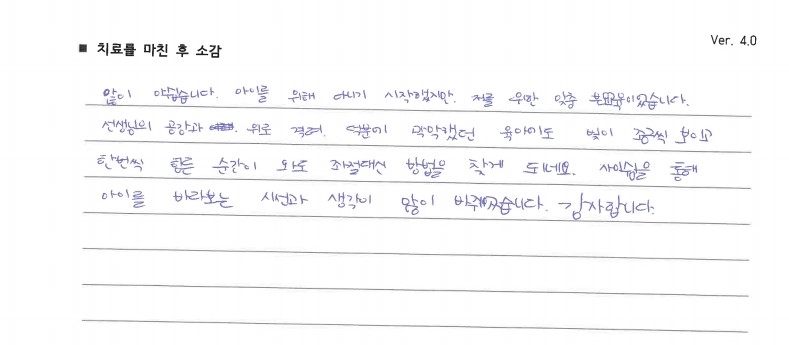 Ver. 4.0
■ 치료를 마친 후 소감
많이 아쉽습니다. 아이를 위해 다니기 시작했지만. 저를 위한 맞춤 부모교육이었습니다.
선생님의 공감과 위로 격려. 덕분에 막막했던 육아에도 빛이 조금씩 보이고
한번씩 힘든 순간이 와도 좌절대신 방법을 찾게 되네요. 사이심을 통해
아이를 바라보는 시선과 생각이 많이 바뀌었습니다. 감사합니다.